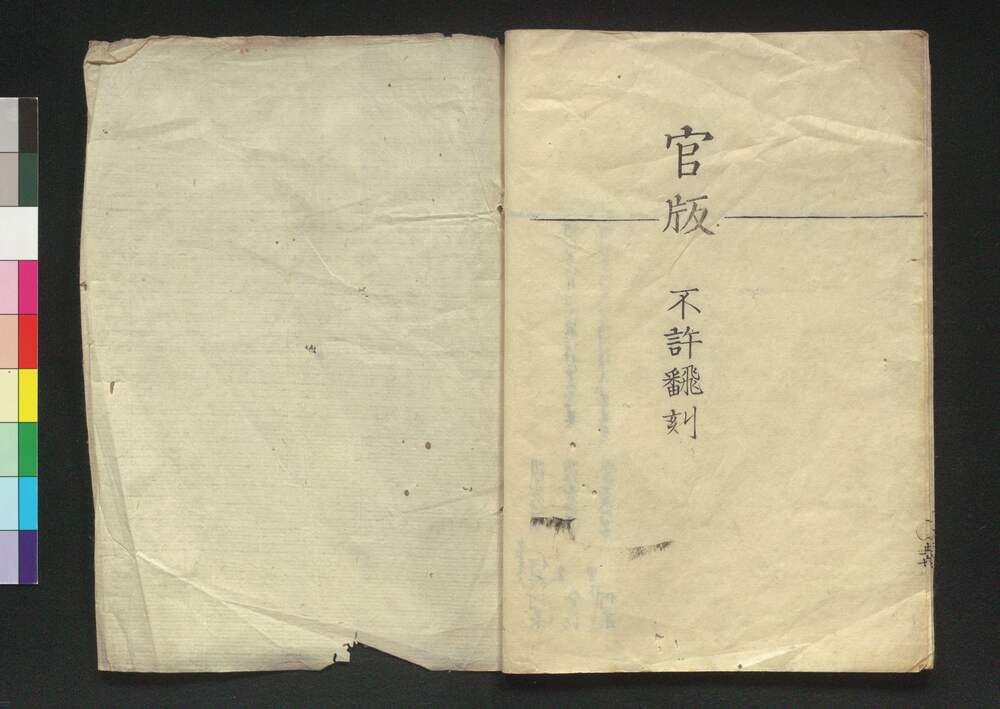 官版
不許飜刻